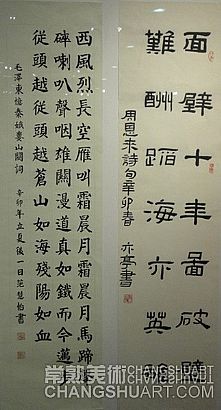 面壁十年圖破壁
難酬蹈海亦英雄
周恩来詩句辛卯春 亦亭書
西風烈長空雁叫霜晨月霜晨月馬蹄聲
碎喇叭聲咽雄關漫道真如鐵而今邁步
從頭越從頭越蒼山如海殘陽如血
毛澤東憶秦娥婁山關詞 辛卯年立夏後一日范慧怡書
常熟美術
CHANGSHUMEISHU